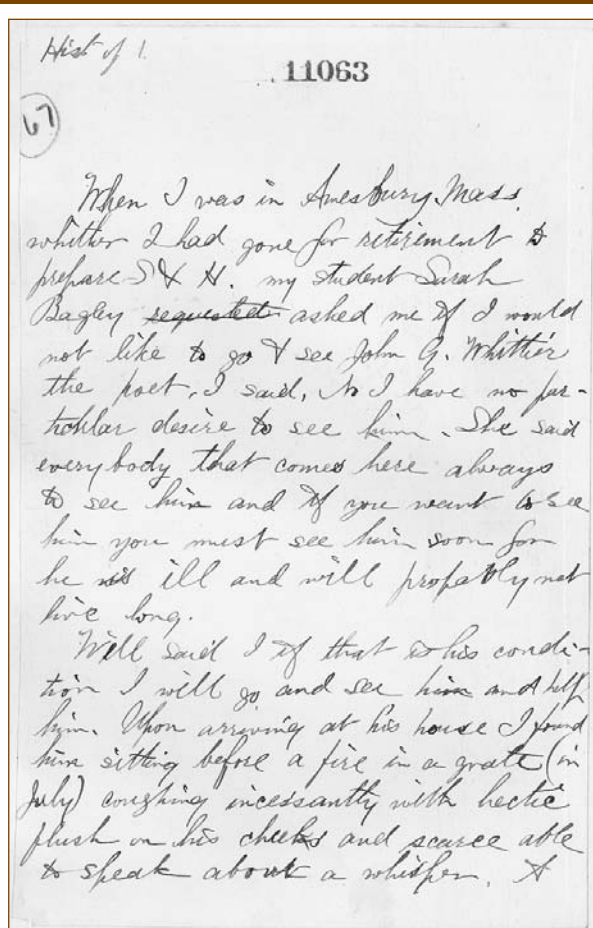 Hist of 1.
11063
67
When I was in Amesbury, Mass.
whither I had gone for retirement to
prepare S & H. my student Sarah
Bagley requested asked me if I would
not like to go & see John G. Whittier
the poet, I said, No I have no par-
ticular desire to see him. She said
everybody that comes here always
to see him and if you want to see
him you must see him soon for
he is ill and will propably not
live long.
Well said I if that is his condi-
tion I will go and see him and help
him. Upon arriving at his house I found
him sitting before a fire in a grate (in
July) coughing incessantly with hectic
flush on his cheeks and scarce able
to speak about a whisper. A